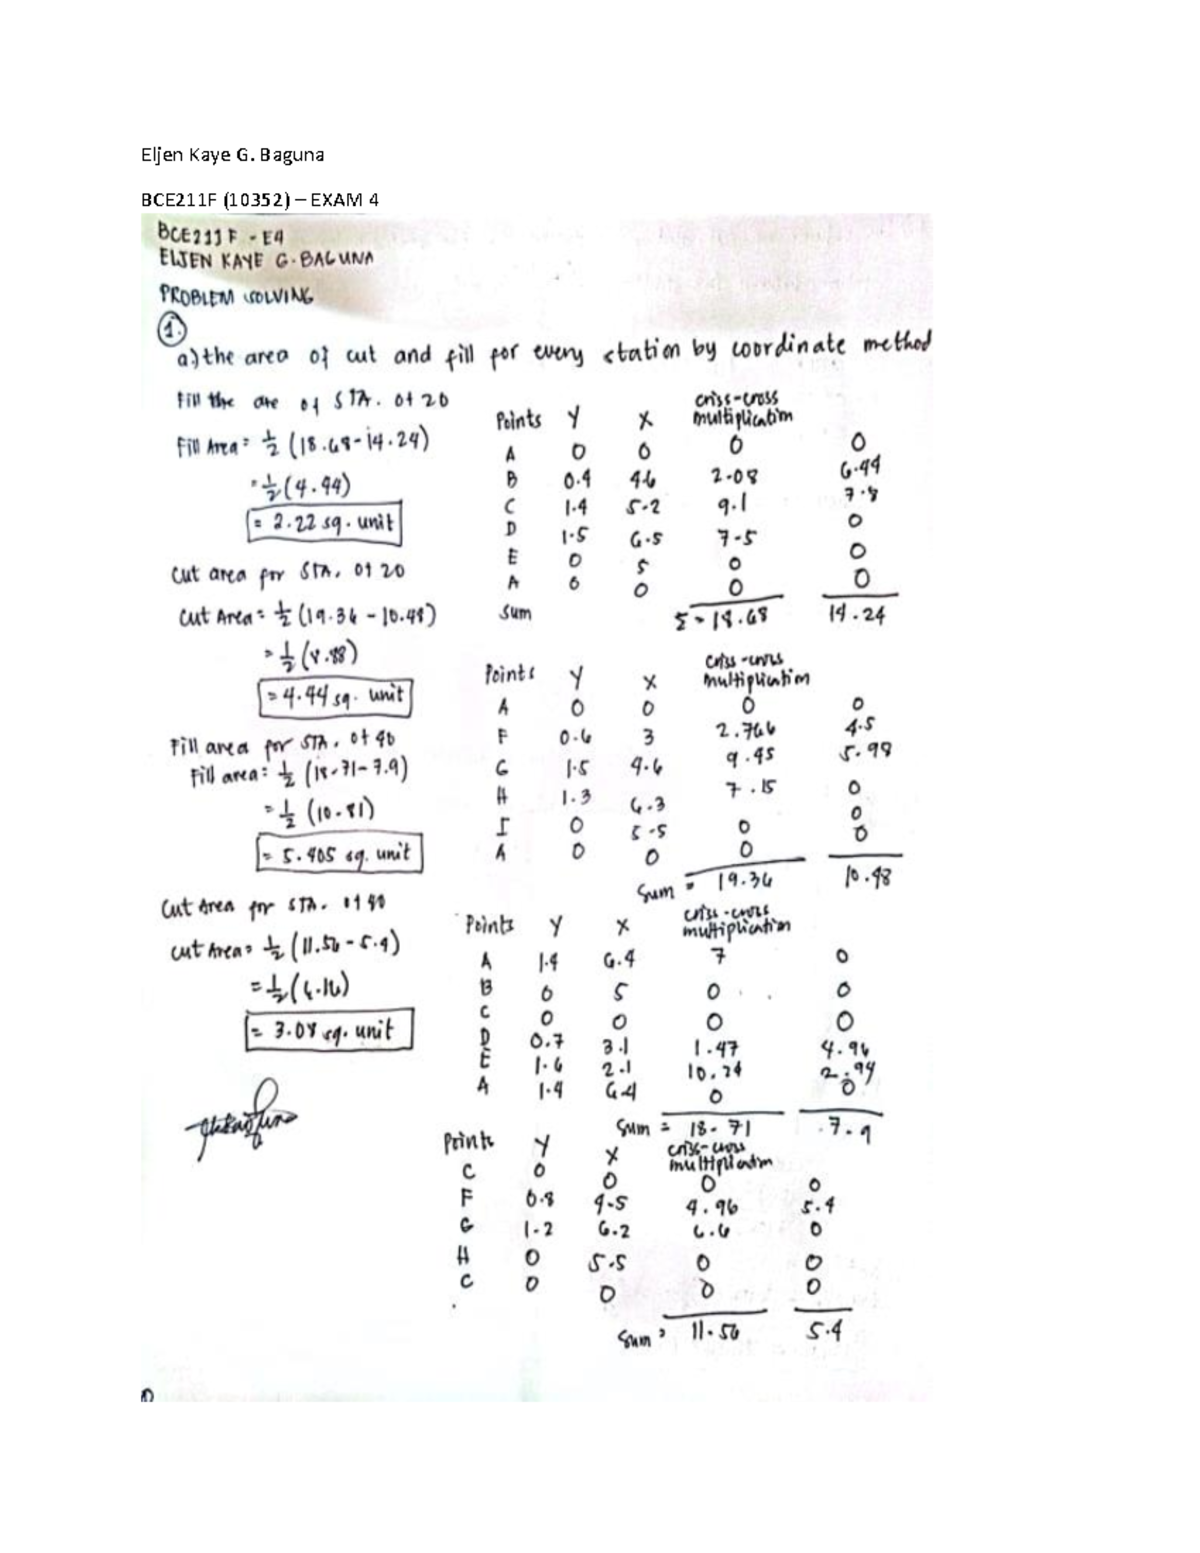 Eljen Kaye G. Baguna
BCE211F (10352) – EXAM 4
BCE211F - E4
ELJEN KAYE G. BAGUNA
PROBLEM SOLVING
1.
a) the area of cut and fill for every station by coordinate method
Fill the are of STA. 0+20
Fill Area = 1/2 (18.68-14.24)
= 1/2 (4.44)
= 2.22 sq. unit
Cut area for STA. 0+20
Cut Area = 1/2 (19.36 - 10.48)
= 1/2 (8.88)
= 4.44 sq. unit
Fill area for STA. 0+40
Fill area = 1/2 (18.71-7.9)
= 1/2 (10.81)
= 5.405 sq. unit
Cut Area for STA. 0+40
Cut Area = 1/2 (11.56-5.4)
= 1/2 (6.16)
= 3.08 sq. unit
Points Y X criss-cross multiplication
A 0 0 0 0
B 0.4 4.6 2.08 6.44
C 1.4 5.2 9.1 7.8
D 1.5 6.5 7.5 0
E 0 5 0 0
A 0 0 0 0
Sum Σ = 18.68 14.24
Points Y X criss-cross multiplication
A 0 0 0 0
F 0.6 3 2.766 4.5
G 1.5 4.6 9.45 5.98
H 1.3 6.3 7.15 0
I 0 5.5 0 0
A 0 0 0 0
Sum = 19.36 10.48
Points Y X criss-cross multiplication
A 1.4 6.4 7 0
B 0 5 0 0
C 0 0 0 0
D 0.7 3.1 1.47 4.96
E 1.6 2.1 10.24 2.94
A 1.4 6.4 0 0
Sum = 18.71 7.9
Points Y X criss-cross multiplication
C 0 0 0 0
F 0.8 4.5 4.96 5.4
G 1.2 6.2 6.6 0
H 0 5.5 0 0
C 0 0 0 0
Sum = 11.56 5.4